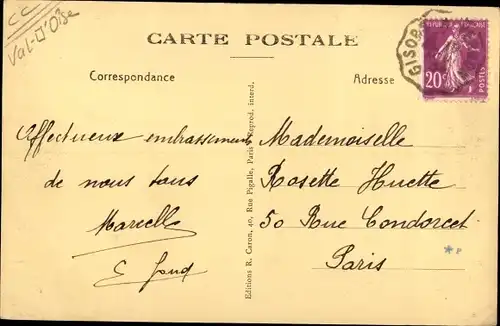 CC
Val-d'Oise
CARTE POSTALE
Correspondance
Adresse
GISORS
REPUBLIQUE FRANÇAISE
20c
POSTES
Effectueux embrassements
de nous tous
Marcelle
Mademoiselle
Rosette Huette
50 Rue Condorcet
Paris
Editions R. Caron, 40, Rue Pigalle, Paris Reprod. interd.